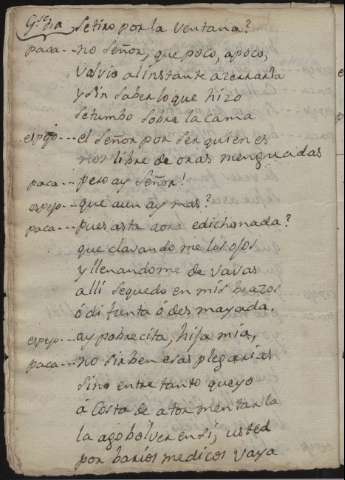 Gª na Setiro por la ventana?
paca--- no Señor, que poco, apoco,
volvio alinstante acerrarla
y sin saber lo que hizo
Setumbo sobre la cama
espejo--- el Señor por Ser quien es
nos libre de oras menguadas
paca--- Pero ay Señor!
espejo--- que aun ay mas?
paca--- pues asta aora edichonada?
que clavando me los ojos
y llenandome de vavas
alli sequedo en mis brazos
ó difunta ó des mayada.
espejo--- ay pobrecita, hija mia,
paca--- no sirben esas plegarias
sino entretanto queyo
á Costa de ator mentarla
la ago bolver en si, usted
por barios medicos vaya